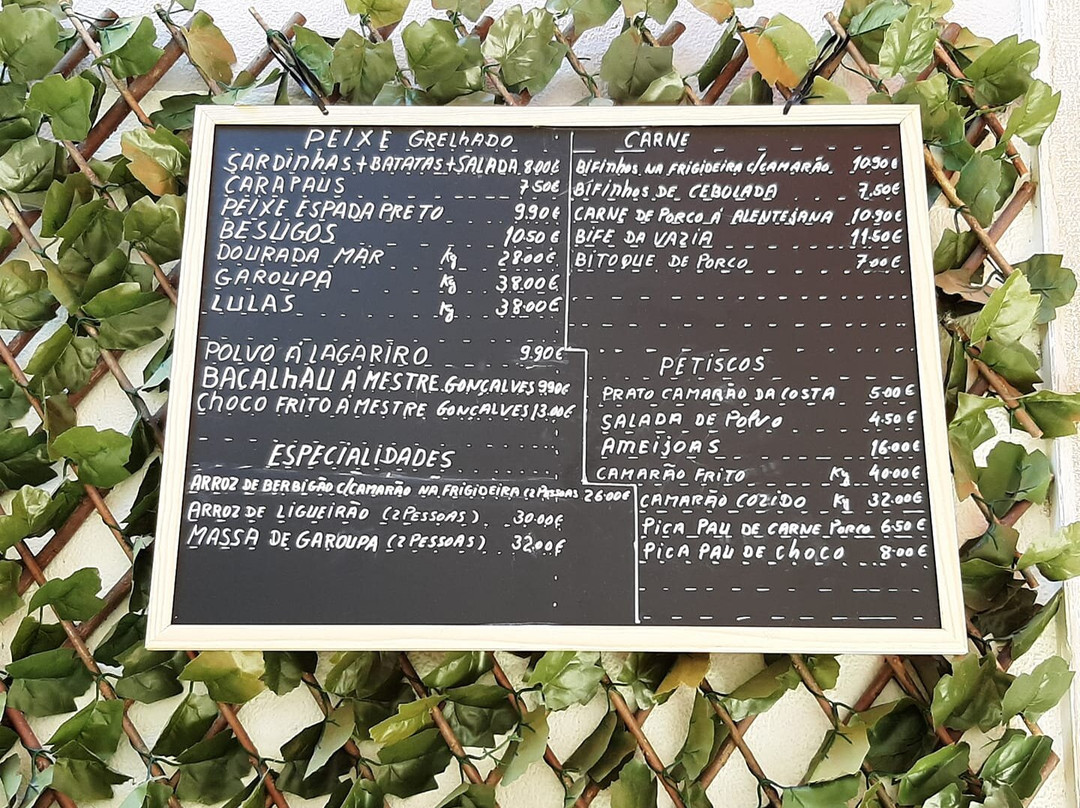 PEIXE GRELHADO
SARDINHAS+BATATAS+SALADA 8.00€
CARAPAUS 7.50€
PEIXE ESPADA PRETO 9.90€
BESUGOS 10.50€
DOURADA MAR Kg 28.00€
GAROUPA Kg 38.00€
LULAS Kg 38.00€
POLVO Á LAGARIRO 9.90€
BACALHAU Á MESTRE GONÇALVES 9.90€
CHOCO FRITO Á MESTRE GONÇALVES 13.00€
ESPECIALIDADES
ARROZ DE BERBIGÃO C/CAMARÃO NA FRIGIDEIRA (2 PESSOAS 26.00€
ARROZ DE LIGUEIRÃO (2 PESSOAS) 30.00€
MASSA DE GAROUPA (2 PESSOAS) 32.00€
CARNE
BIFINHOS NA FRIGIDEIRA C/CAMARÃO 10.90€
BIFINHOS DE CEBOLADA 7.50€
CARNE DE PORCO Á ALENTEJANA 10.90€
BIFE DA VAZIA 11.50€
BITOQUE DE PORCO 7.00€
PETISCOS
PRATO CAMARÃO DA COSTA 5.00€
SALADA DE POLVO 4.50€
AMEIJOAS 16.00€
CAMARÃO FRITO Kg 40.00€
CAMARÃO COZIDO Kg 32.00€
PICA PAU DE CARNE PORCO 6.50€
PICA PAU DE CHOCO 8.00€